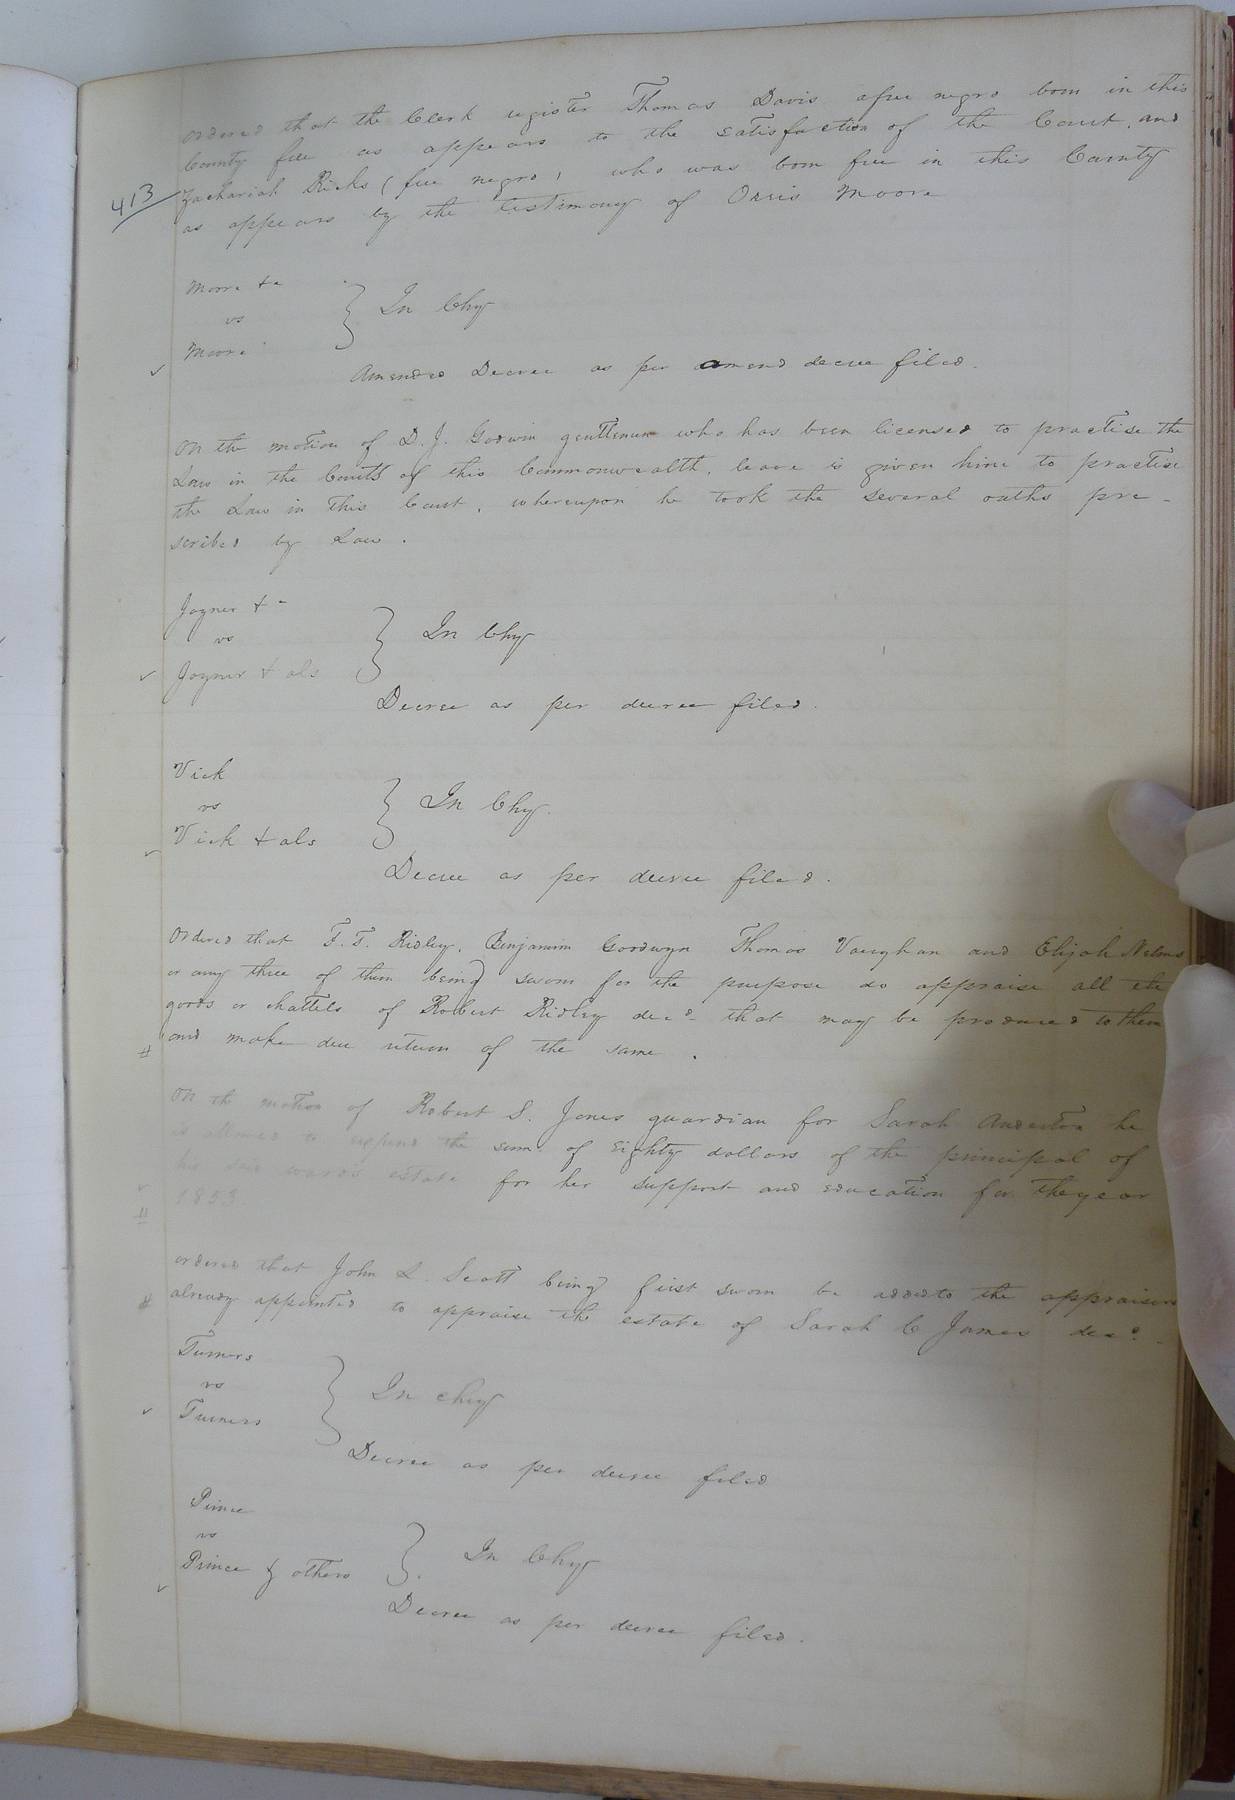 ordered that the Clerk register Thomas Davis a free negro born in this
County free as appears to the satisfaction of the Court, and
413
Zachariah Ricks (free negro) who was born free in this County
as appears by the testimony of Orris Moore
Moore &c
vs
Moore
} In Chy
Amended Decree as per amend decree filed.
On the motion of D. J. Godwin gentleman who has been licensed to practise the
Law in the Courts of this Commonwealth, leave is given him to practise
the Law in this Court, whereupon he took the several oaths pre-
scribed by Law.
Joyner &c
vs
Joyner & als
} In Chy
Decree as per decree filed.
Vick
vs
Vick & als
} In Chy.
Decree as per decree filed.
Ordered that F. T. Ridley, Benjamin Goodwyn Thomas Vaughan and Elijah Nelms
or any three of them being sworn for the purpose do appraise all the
goods or chattels of Robert Ridley decd- that may be produced to them
# and make due return of the same.
On the motion of Robert S. Jones guardian for Sarah he
is allowed to expend the sum of Eighty dollars of the principal of
his said wards estate for her support and education for the year
1853
#
ordered that John L. Scott being first sworn be added to the appraisers
# already appointed to appraise the estate of Sarah C James decd.
Turners
vs
Turners
} In chy
Decree as per decree filed
Prince
vs
Prince & others
} In Chy
Decree as per decree filed.